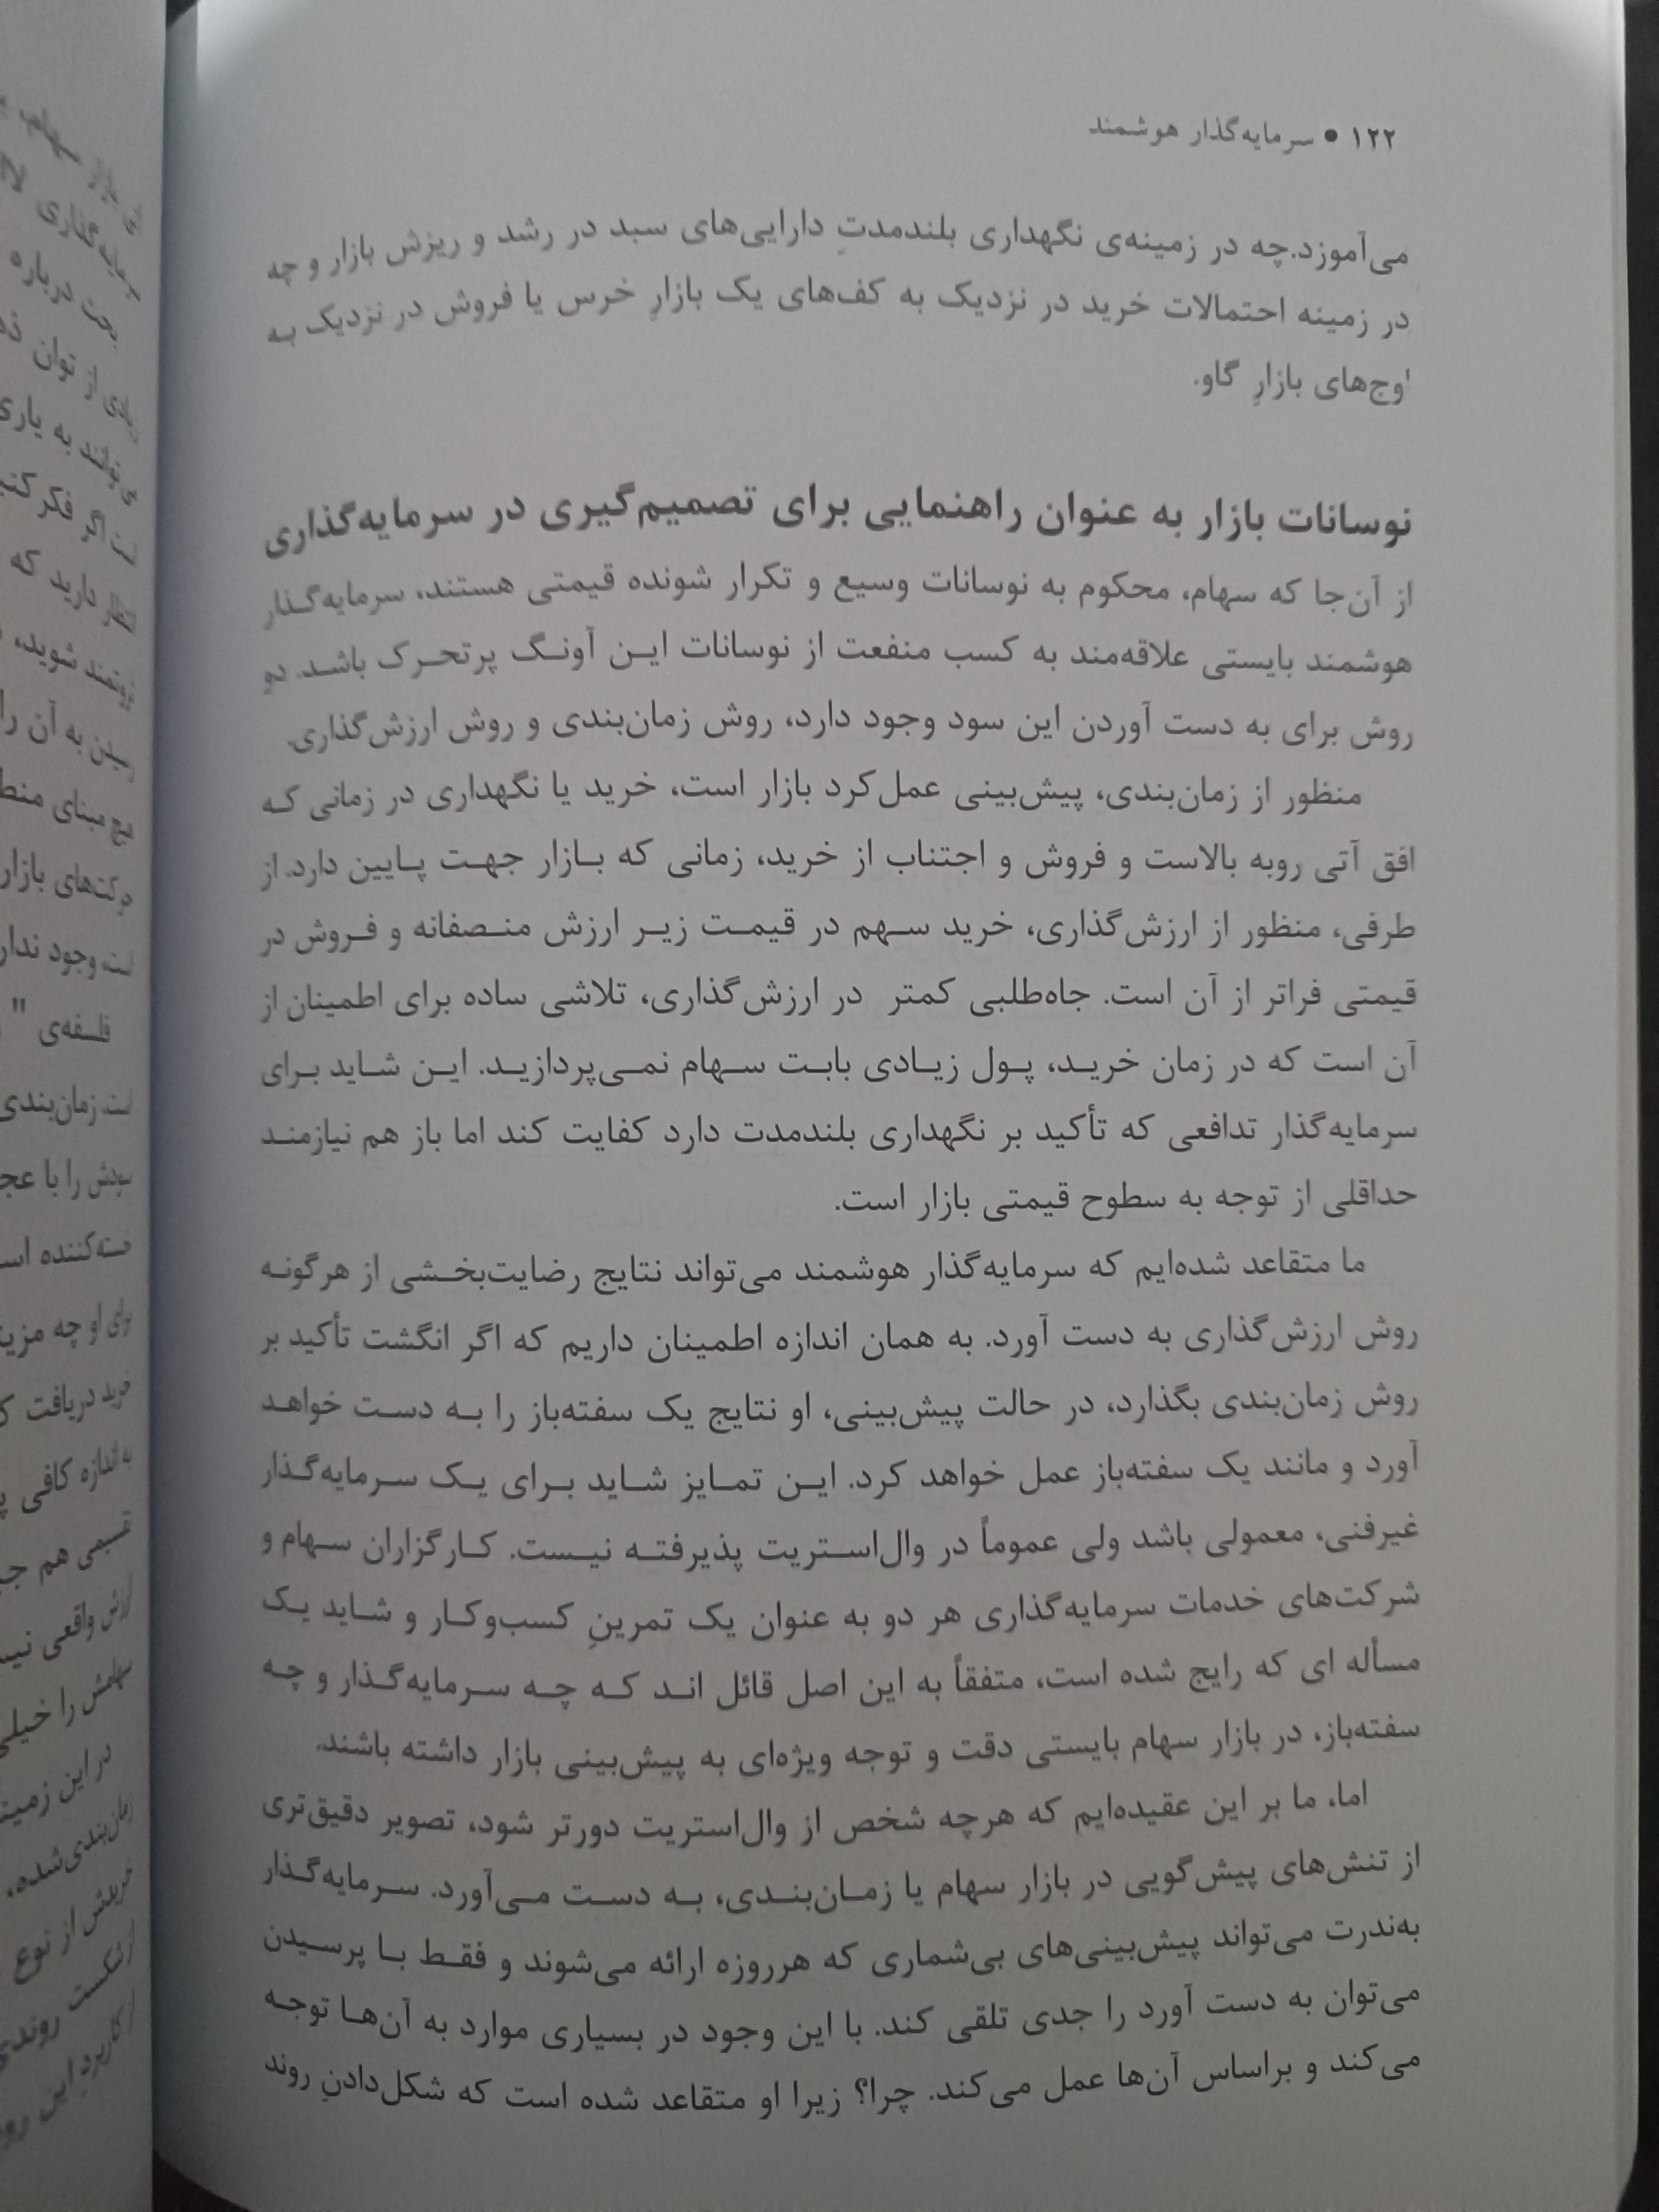 ۱۲۲ • سرمایه‌گذار هوشمند
می‌آموزد.چه در زمینه‌ی نگهداری بلندمدتِ دارایی‌های سبد در رشد و ریزش بازار و چه
در زمینه احتمالات خرید در نزدیک به کف‌های یک بازارِ خرس یا فروش در نزدیک به
اوج‌های بازارِ گاو.
نوسانات بازار به عنوان راهنمایی برای تصمیم‌گیری در سرمایه‌گذاری
از آن‌جا که سهام، محکوم به نوسانات وسیع و تکرار شونده قیمتی هستند، سرمایه‌گذار
هوشمند بایستی علاقه‌مند به کسب منفعت از نوسانات این آونگ پرتحرک باشد. دو
روش برای به دست آوردن این سود وجود دارد، روش زمان‌بندی و روش ارزش‌گذاری.
منظور از زمان‌بندی، پیش‌بینی عمل‌کرد بازار است، خرید یا نگهداری در زمانی که
افق آتی روبه بالاست و فروش و اجتناب از خرید، زمانی که بازار جهت پایین دارد. از
طرفی، منظور از ارزش‌گذاری، خرید سهم در قیمت زیر ارزش منصفانه و فروش در
قیمتی فراتر از آن است. جاه‌طلبی کمتر در ارزش‌گذاری، تلاشی ساده برای اطمینان از
آن است که در زمان خرید، پول زیادی بابت سهام نمی‌پردازید. این شاید برای
سرمایه‌گذار تدافعی که تأکید بر نگهداری بلندمدت دارد کفایت کند اما باز هم نیازمند
حداقلی از توجه به سطوح قیمتی بازار است.
ما متقاعد شده‌ایم که سرمایه‌گذار هوشمند می‌تواند نتایج رضایت‌بخشی از هرگونه
روش ارزش‌گذاری به دست آورد. به همان اندازه اطمینان داریم که اگر انگشت تأکید بر
روش زمان‌بندی بگذارد، در حالت پیش‌بینی، او نتایج یک سفته‌باز را به دست خواهد
آورد و مانند یک سفته‌باز عمل خواهد کرد. این تمایز شاید برای یک سرمایه‌گذار
غیرفنی، معمولی باشد ولی عموماً در وال‌استریت پذیرفته نیست. کارگزاران سهام و
شرکت‌های خدمات سرمایه‌گذاری هر دو به عنوان یک تمرینِ کسب‌وکار و شاید یک
مسأله ای که رایج شده است، متفقاً به این اصل قائل اند که چه سرمایه‌گذار و چه
سفته‌باز، در بازار سهام بایستی دقت و توجه ویژه‌ای به پیش‌بینی بازار داشته باشند.
اما، ما بر این عقیده‌ایم که هرچه شخص از وال‌استریت دورتر شود، تصویر دقیق‌تری
از تنش‌های پیش‌گویی در بازار سهام یا زمان‌بندی، به دست می‌آورد. سرمایه‌گذار
به‌ندرت می‌تواند پیش‌بینی‌های بی‌شماری که هرروزه ارائه می‌شوند و فقط با پرسیدن
می‌توان به دست آورد را جدی تلقی کند. با این وجود در بسیاری موارد به آن‌ها توجه
می‌کند و براساس آن‌ها عمل می‌کند. چرا؟ زیرا او متقاعد شده است که شکل‌دادنِ روند